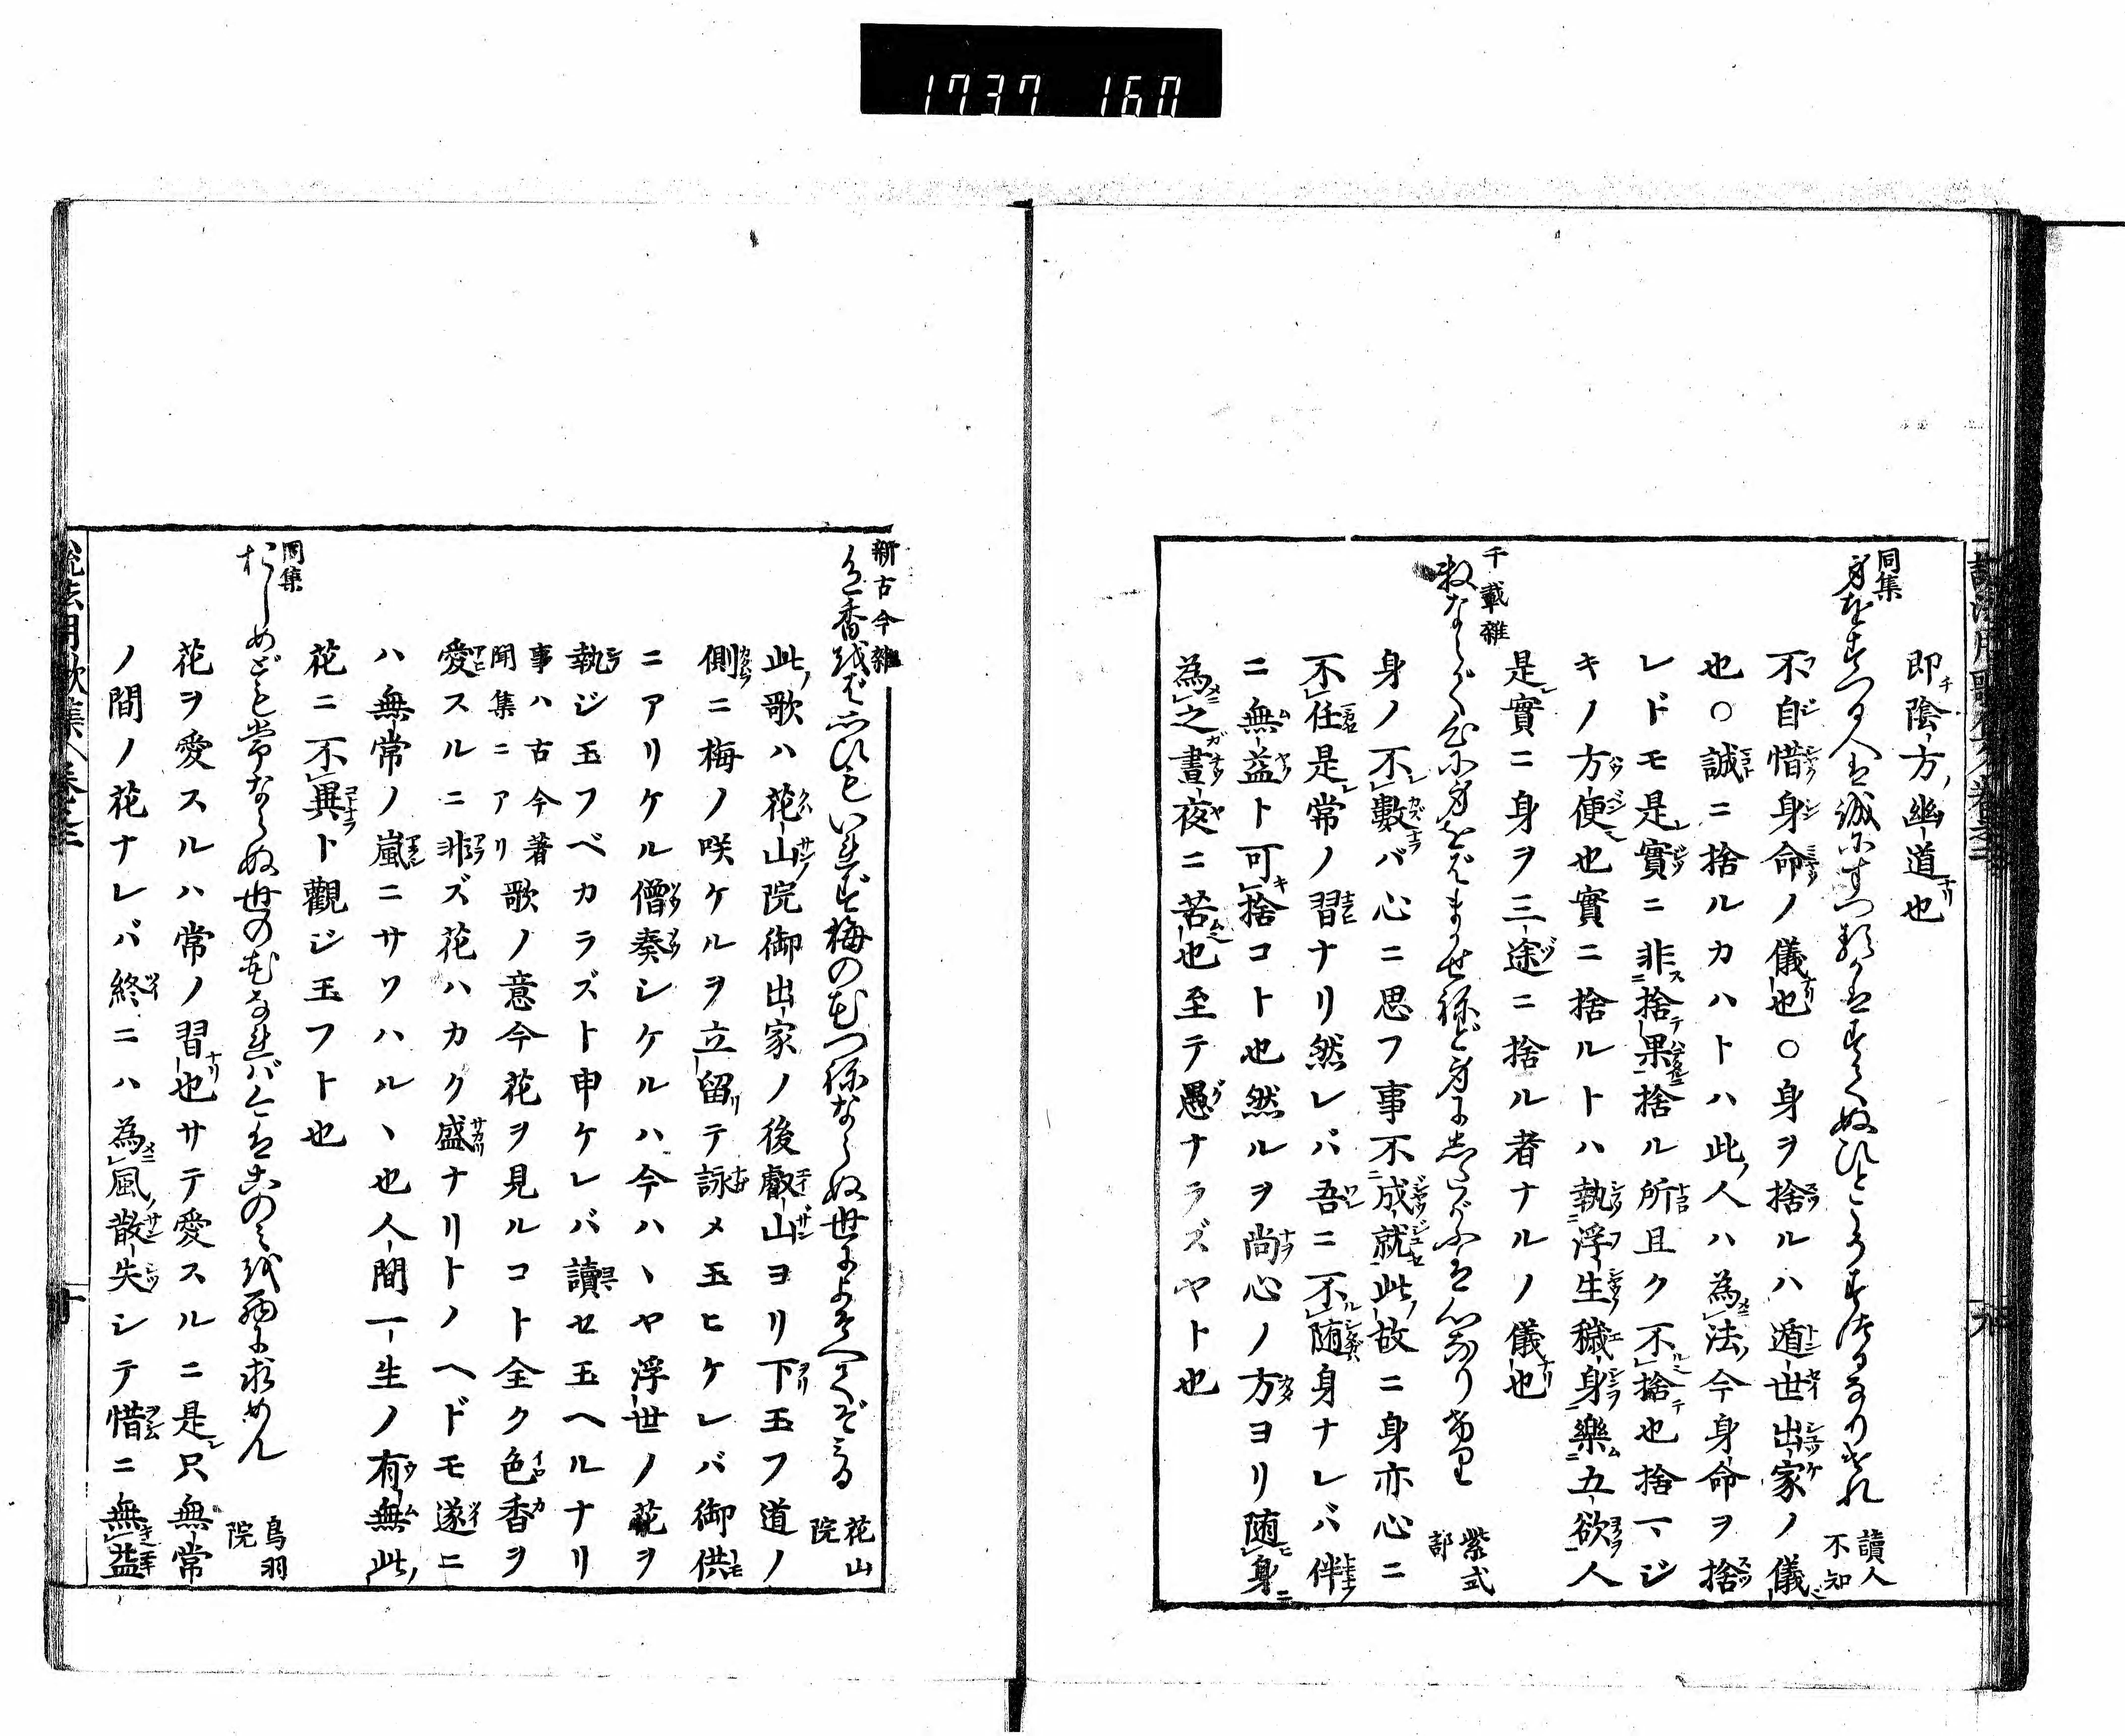 1737 160
即陰方ノ幽道也
同集
身をすつる人は誠にすつるかはすてぬひとこそすつるなりけれ
讀人不知
不自惜身命ノ儀也○身ヲ捨ルハ遁世出家ノ儀
也○誠ニ捨ルカハトハ此ノ人ハ為法ノ今身命ヲ捨
レドモ是實ニ非捨果捨ル所且ク不捨也捨マジ
キノ方便也實ニ捨ルトハ執浮生穢身樂五欲人
是實ニ身ヲ三途ニ捨ル者ナルノ儀也
千載雜
數ならで心に身をばまかせねど身にしたがふは心なりけり
紫式部
身ノ不數バ心ニ思フ事不成就此ノ故ニ身亦心ニ
不任是常ノ習ナリ然レバ吾ニ不随身ナレバ伴
ニ無益ト可捨コト也然ルヲ尚心ノ方ヨリ随身
為之晝夜ニ苦也至テ愚ナラズヤト也
新古今雜
色香をば思ひもいれず梅の花つねならぬ世によそへてぞみる
花山院
此ノ歌ハ花山院御出家ノ後叡山ヨリ下玉フ道ノ
側ニ梅ノ咲ケルヲ立留リテ詠メ玉ヒケレバ御供
ニアリケル僧奏シケルハ今ハヽヤ浮世ノ花ヲ
執ジ玉フベカラズト申ケレバ讀セ玉ヘルナリ
事ハ古今著聞集ニアリ歌ノ意今花ヲ見ルコト全ク色香ヲ
愛スルニ非ズ花ハカク盛ナリトノヘドモ遂ニ
ハ無常ノ嵐ニサソハルヽ也人間一生ノ有無此ノ
花ニ不異ト觀ジ玉フト也
同集
おしめども常ならぬ世の花なれば今はこのみを西に求めん
鳥羽院
花ヲ愛スルハ常ノ習也サテ愛スルニ是只無常
ノ間ノ花ナレバ終ニハ為風ノ散失シテ惜ニ無益